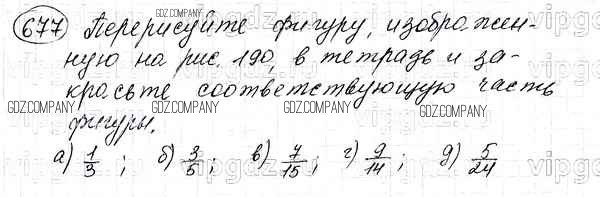 677 Перерисуйте фигуру, изображен-
ную на рис. 190, в тетрадь и за-
красьте соответствующую часть
фигуры.
а) 1/3 ; б) 3/5 ; в) 7/15 ; г) 9/14 ; д) 5/24
GDZ.COMPANY GDZ.COMPANY GDZ.COMPANY
GDZ.COMPANY GDZ.COMPANY GDZ.COMPANY GDZ.COMPANY
vipgdz